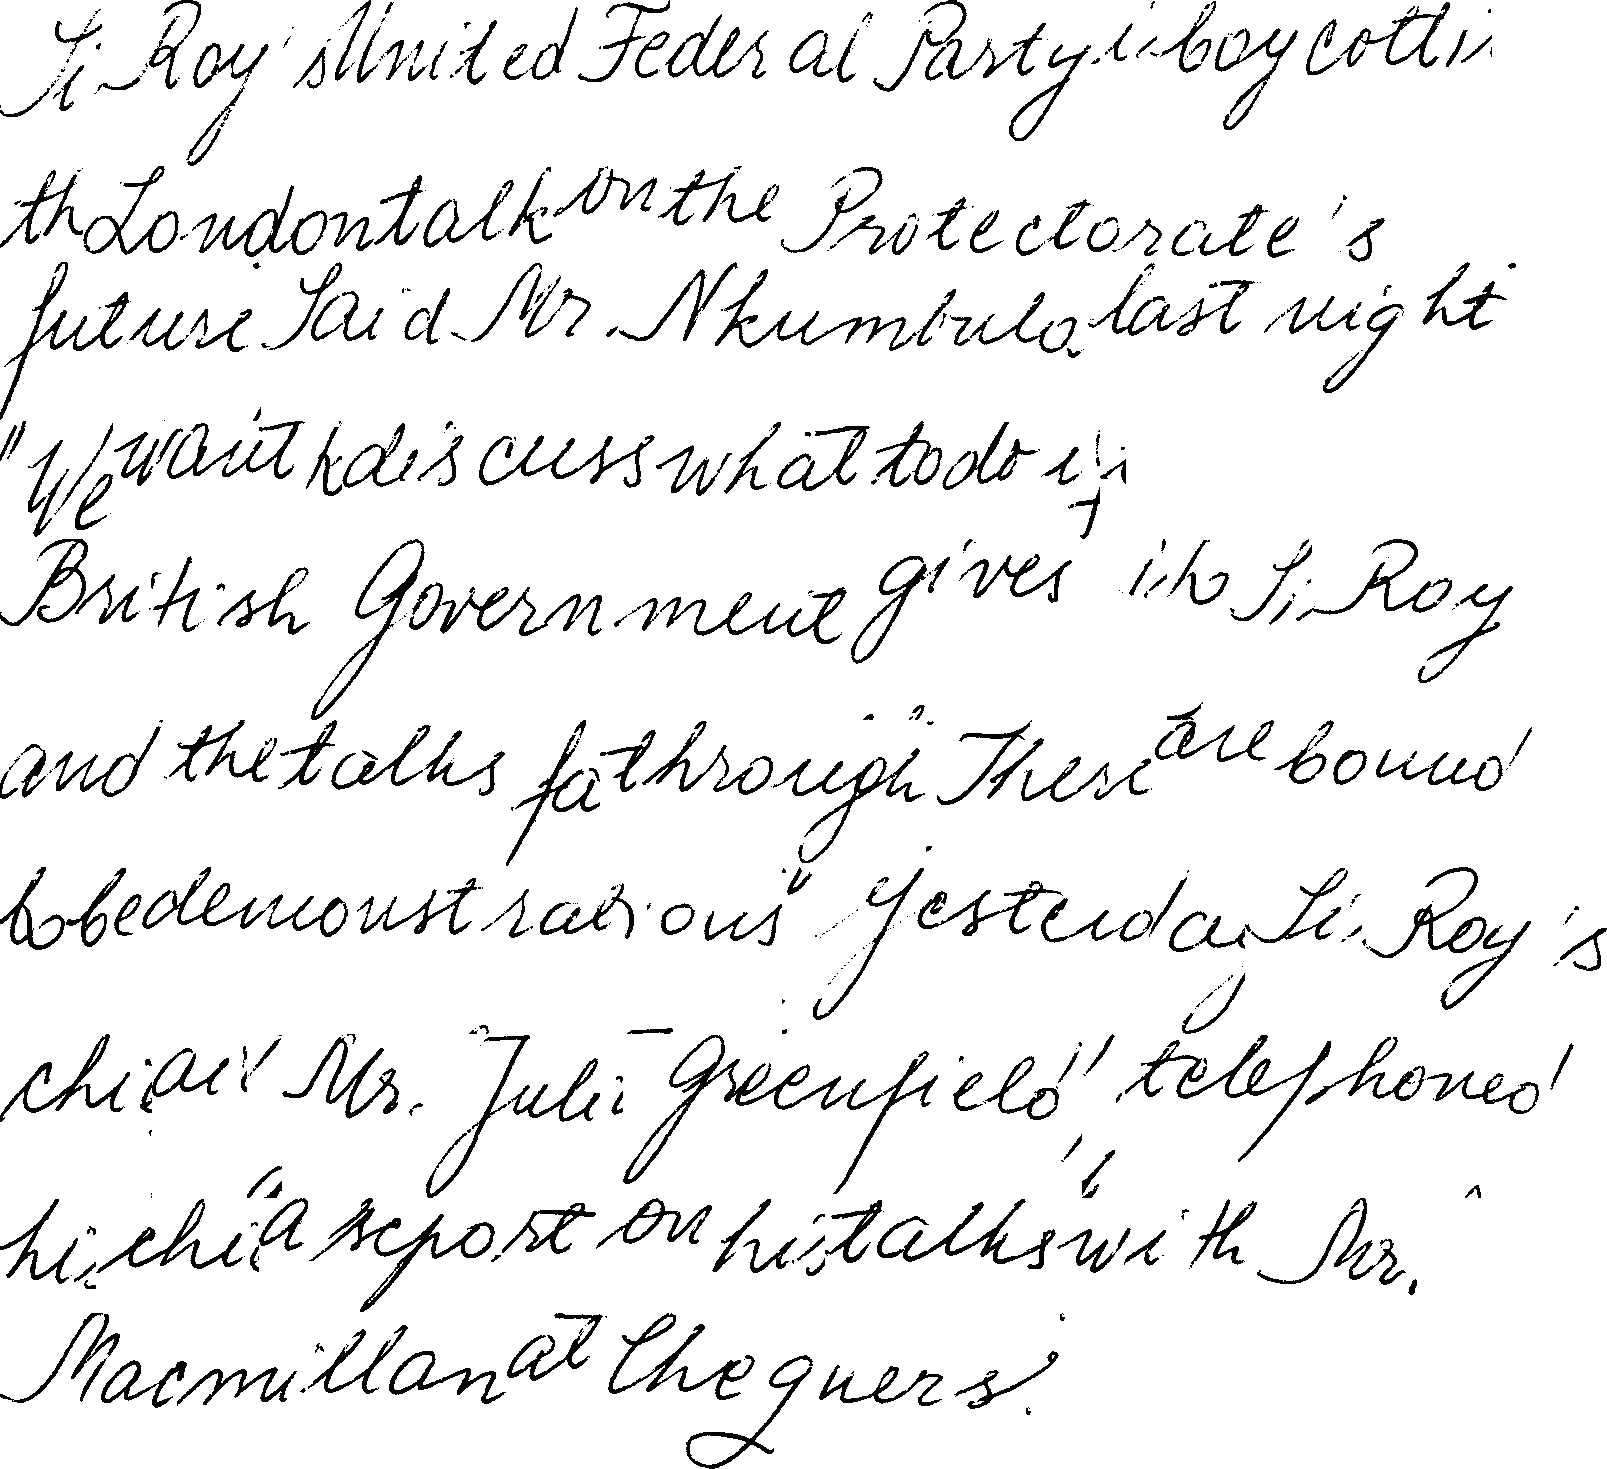 Sir Roy's United Federal Party is boycotting
the London talks on the Protectorate's
future Said Mr. Nkumbula last night
"We want to discuss what to do if
British Government gives in to Sir Roy
and the talks fall through There are bound
to be demonstrations" Yesterday Sir Roy's
chief aide Mr. Julius Greenfield telephoned
his chief a report on his talks with Mr.
Macmillan at Chequers.